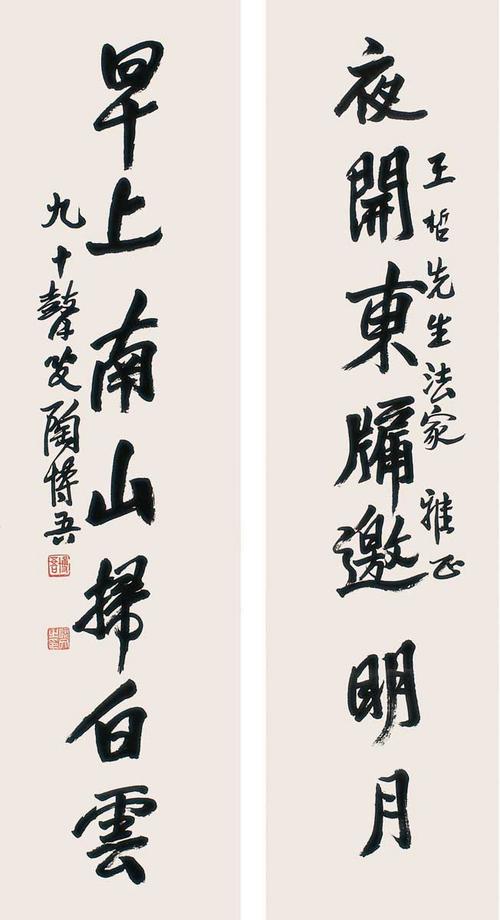 夜開東牖邀明月
王哲先生法家雅正
早上南山掃白雲
九十聱叟陶博吾
博吾